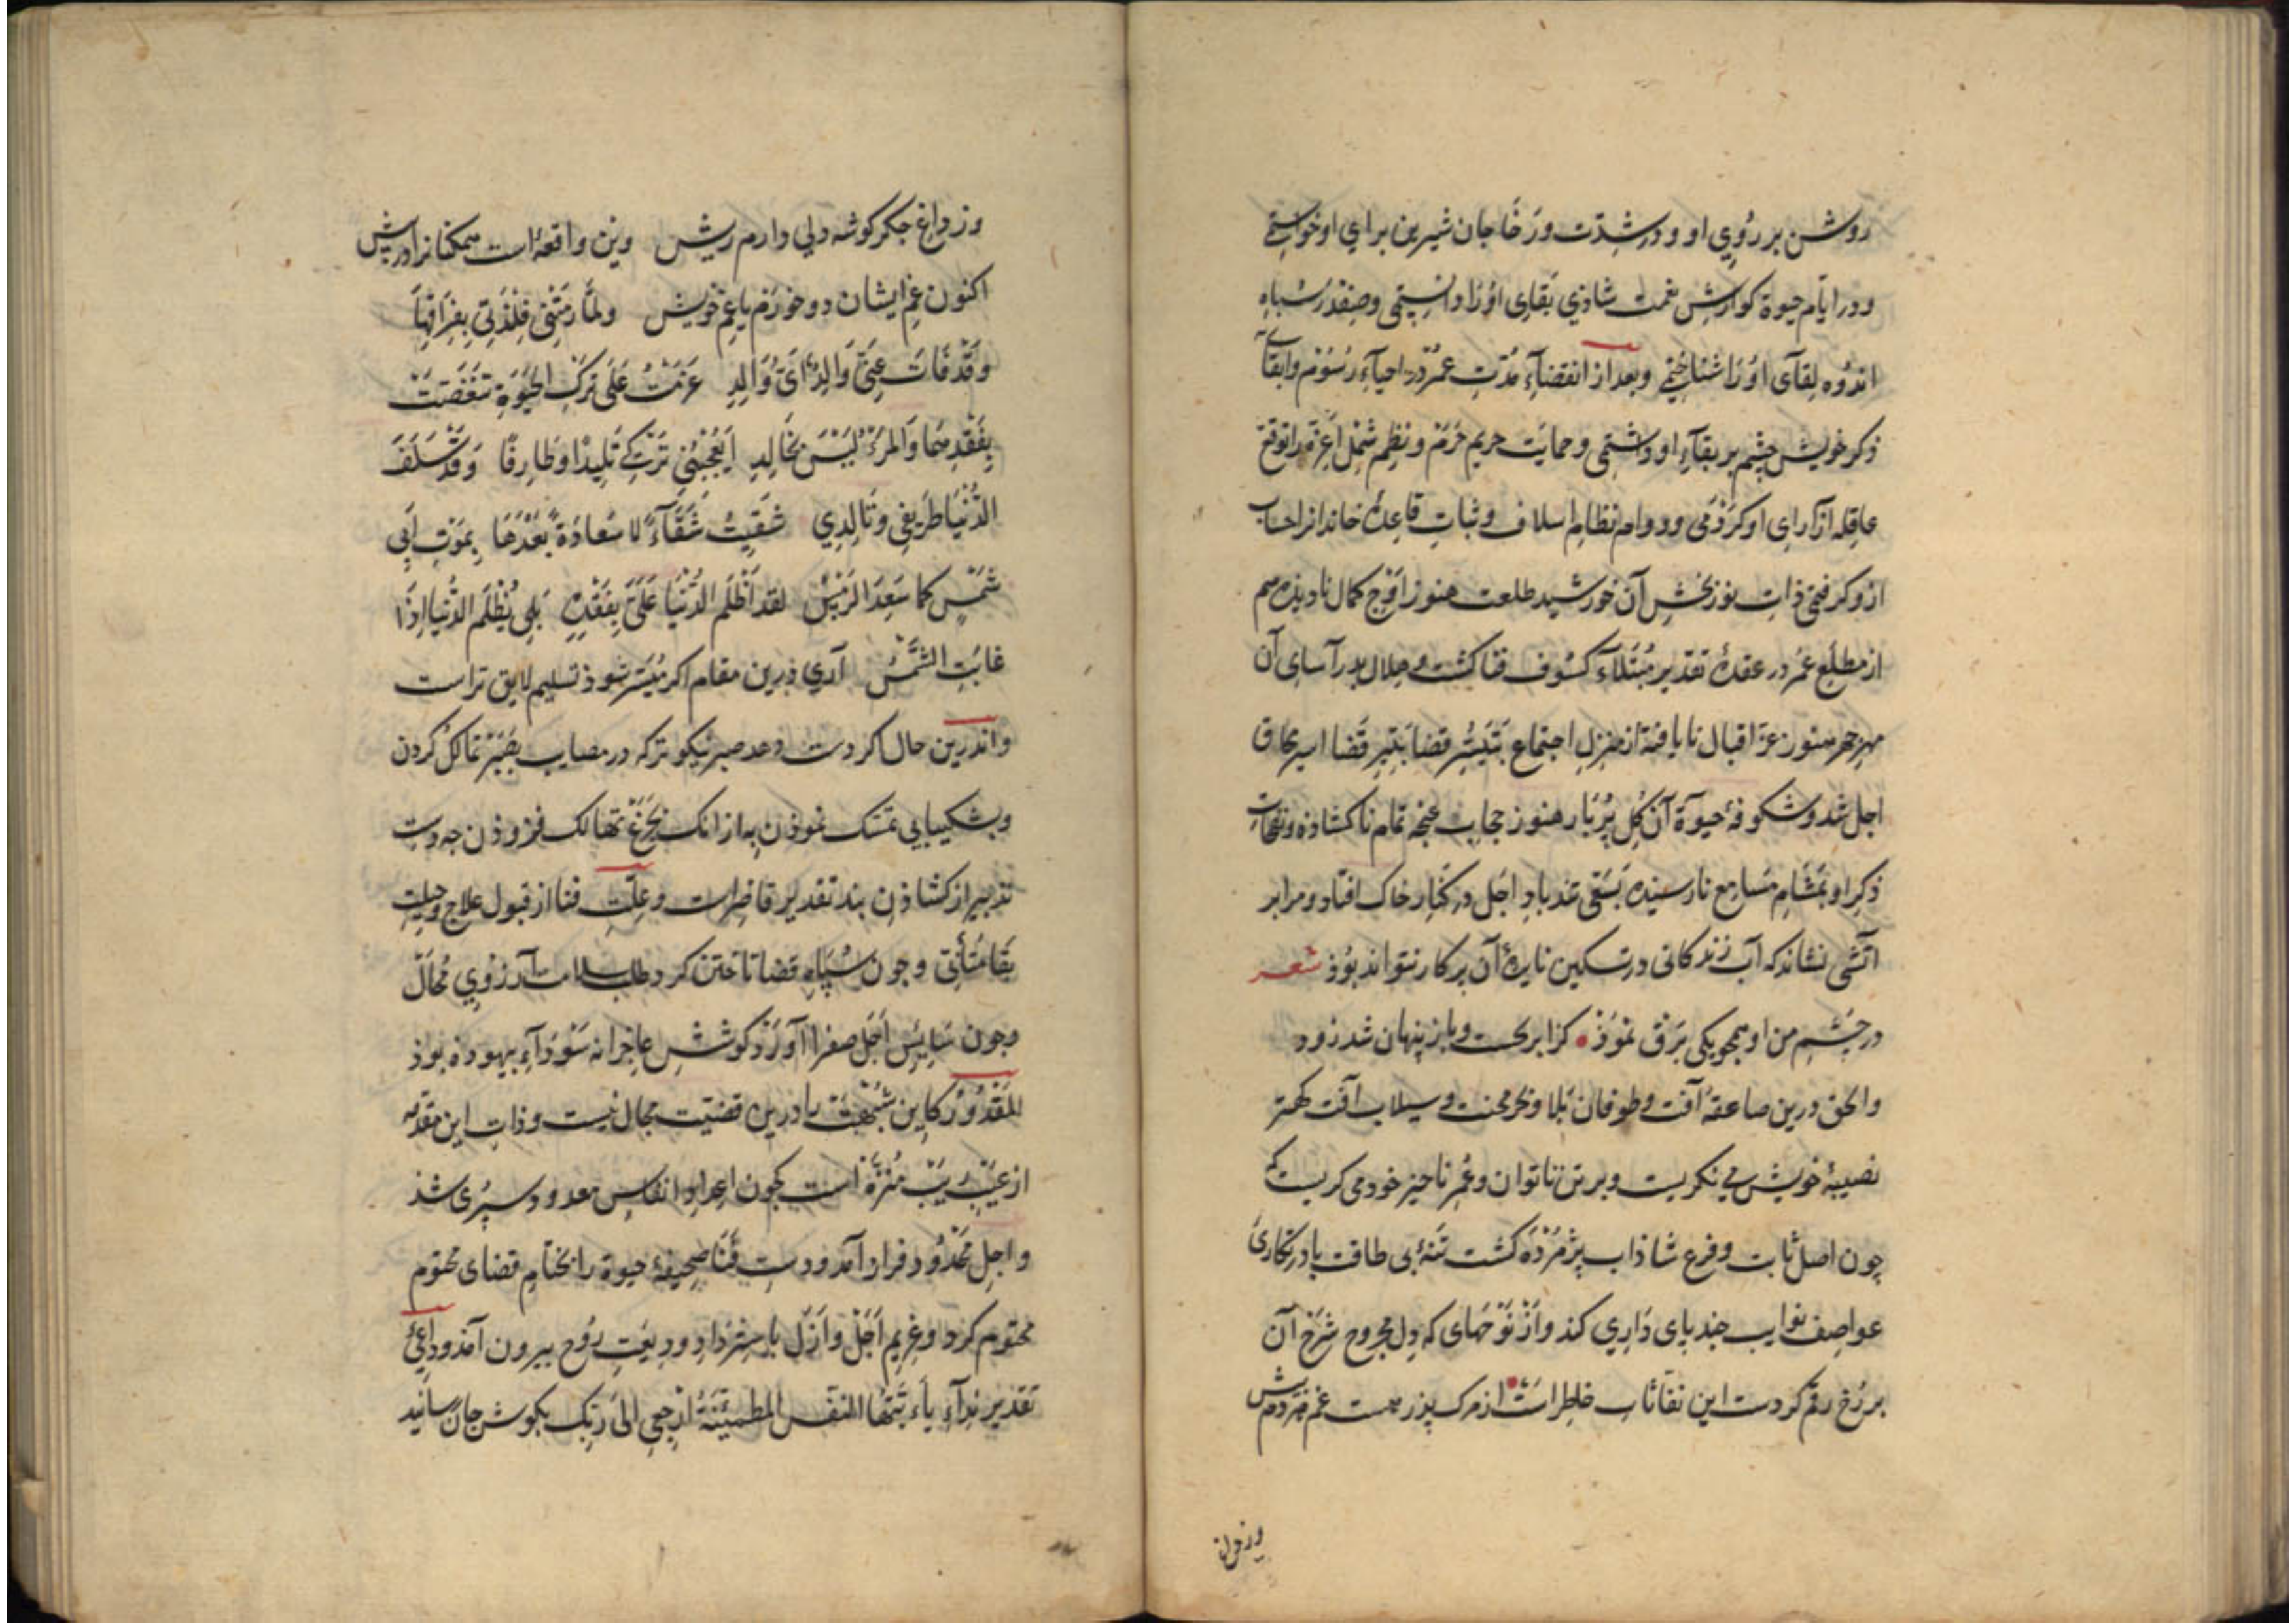 روشن بر رُوِي او و در شدّت وَرَخَا جان شيرين براي او خواستي
و در ايّام حيوة كوارش نعمت شاذي بَقاى اوُرَا دانستمى و صفدر سُپاه
اندُوه لِقآى اوُرَا شناختمى و بعد از انقضآءِ مُدّتِ عمُر در احيآءِ رسُوم و ابقآءِ
ذكر خويش چشم بر بقآءِ او داشتمى و حمايَت حريم حَرَم و نظم شمْل اعِزّه را توقع
عاقله از آراىِ او كرَدْمى و دوام نظامِ اسلاف و ثباتِ قاعدهٔ خاندانرا حساب
از و كرفتمى ذاتِ نوربخش آن خورشيد طلعت هنوز اوَج كمال ناديذه هم
از مطلعِ عمُر در عقدهٔ تقدير مُبتلاءِ كسُوف فنا كشت و هلال بدرآساى آن
مهرچهر هنوز عزّ اقبال نايافته از منزلِ اجتماع بَتيَسُّر قضا بَتيرِ قضا اسيرِ محاق
اجل شد و شكوفهٔ حيوٓة آن كُلِ پُربَار هنوز حجابِ غنچه تمام ناكشاذه و نفحاتِ
ذكرِ او بمَشَامِ مَسامِع نارسيذه بسَقىِ تند بادِ اجَل در كنَارِ خاك افتاد و مرا بر
آتشى نشاند كه آبِ زندكانى در تسكين نايرهٔ آن بر كار نتواند بوُذ شعر
در چَشم من او همچو يكى بَرْق نموُذْ كز ابر بجست و باز پنهان شد زود
و الحق درين صاعقهٔ آفت و طوفان بَلا و بحرِ محنت و سيلاب آفت كمتر
نصيبهٔ خويش مي نكريست و بر تن ناتوان و عُمرِ ناچيز خود مى كريست كه
چون اصل ثابت و فرع شاذاب پژمُرْدَه كشت تنهٔ بى طاقت پا در نكارى
عواصف نوايب چند پاى دَارِي كند و از نَوْحهاى كه دِل مجروح شرْحِ آن
بر رُخ رقم كردست اين نفاثات خاطِر است از مرك پذر هست غم مرد مش
وز فراق
وز داغ جكر كوشه دلي دارم ريش وين واقعهٔ است همكنانرا در پيش
اكنون غمِ ايشان دو خورَم يا غمِ خويش ولمَّا رَمَتْنِى فِلْذَتِي بِفِرَاقِهَا
وَقَدْ فَاتَ عَنِّي وَالِدٌ اَىُّ وَالِدٍ عزمتُ عَلَى تَركِ الحيَوٰةِ تنَغَّصَتْ
بِفَقْدِهِمَا وَالمَرْءُ لَيْسَ بِخَالِدٍ اَيُعْجِبُنِي تَرْكِي تَلِيدًا وَطَارِفًا وَقَدْ سَلَفَ
الدُّنْيَا طَرِيفِي وَتَالِدِي شَقِيتُ شَقَآءً لا سَعَادَةَ بَعْدَهَا بِمَوْتِ اَبِي
شَمْسٍ كما سَعِدَ الرَّمْسُ لقد اَظْلَم الدُّنْيَا عَلَىَّ بِفَقْدِهِ بَلَى تُظْلَم الدُّنيا اِذَا
غابَتِ الشَّمْسُ آري درين مقام اكر مُيَسّر شوذ تسليم لايق تراست
و اندرين حال اكر دست دهد صبر نيكوتر كه در مصايب بصَبْر تمالك كردن
و بشكيبايى تمسّك نموذن بِه از انك بجَزَعْ تهالك فزوذن چه دستِ
تدبير از كشاذن بند تقدير قاصِر است و علّتِ فنا از قبول علاج و حيلت
بقَا مُتأبّى و چون سُپاه قضا تاختن كرد طلبِ سلامت آرزُوىِ مُحَال
و چون سَايِسِ اَجَل صفرا آوَرد كوشش عاجزانه سَوْدَآءِ بيهوده بوذ
المَقْدُورُ كاين شُبْهَت را درين قضيّت مجال نيست و ذاتِ اين مقدّمه
از عَيْبِ رَيْبْ مُنزّهْ است كچون اعِدادِ انفاسِ معدود سپرُى شذ
و اجلِ محْدُود فراز آمد و دستِ فَنَا صحيفهٔ حيوة را بختامِ قضاى محتوم
مختوم كرد و غرِيمِ اَجَل وَاَزَل باِستردادِ وديعَتِ رُوح بيرون آمذ و داعئ
تقديرندآءِ يآءَيَّتُهَا النَفْسُ المُطمَئِنَّةُ ارْجِعي اِلىَ رَبِّك بكوشِ جان رسانيد